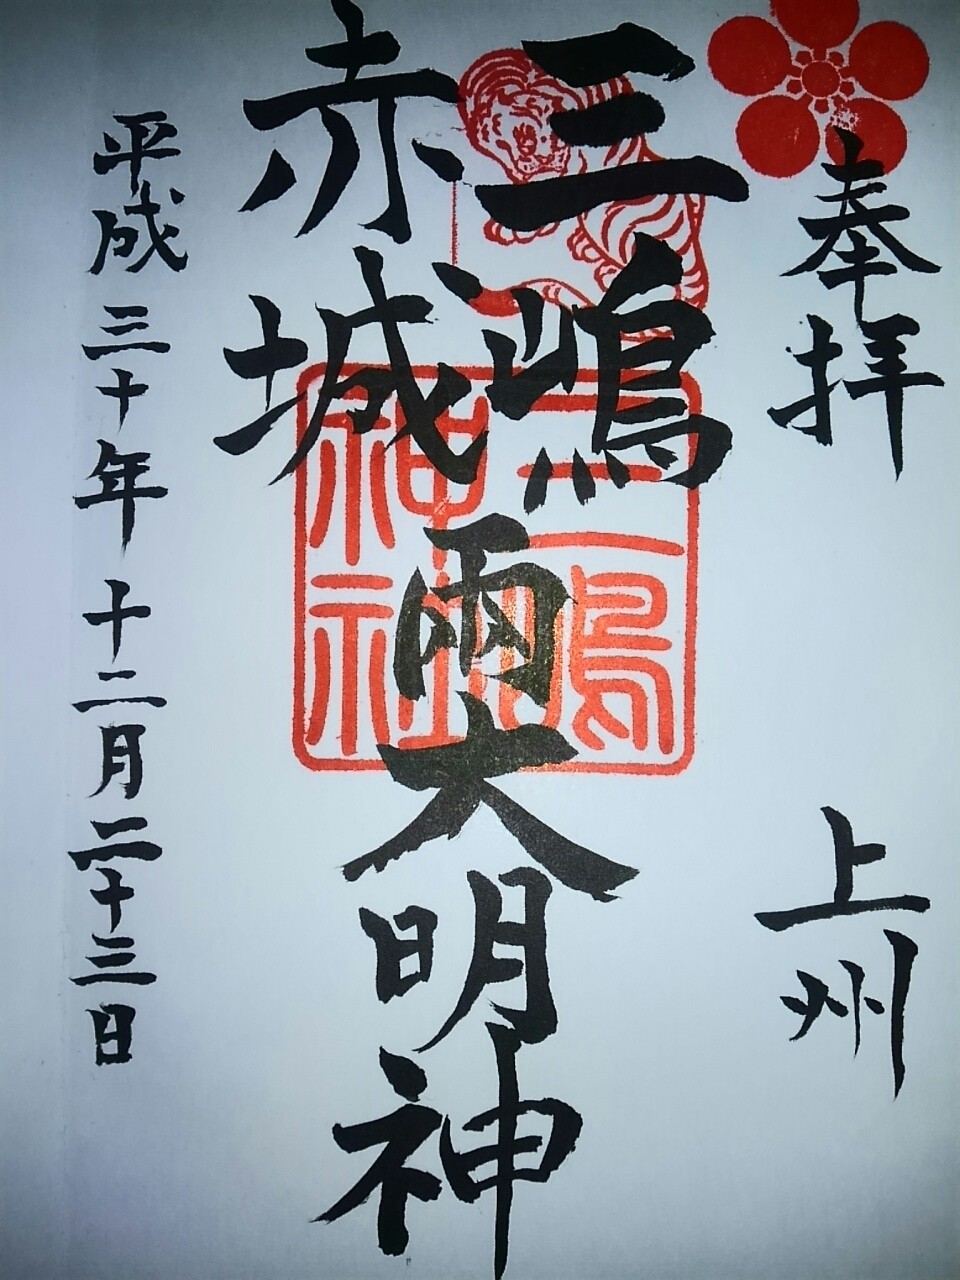 奉拝
上州
三嶋
赤城
両大明神
三嶋
神社
平成三十年十二月二十三日